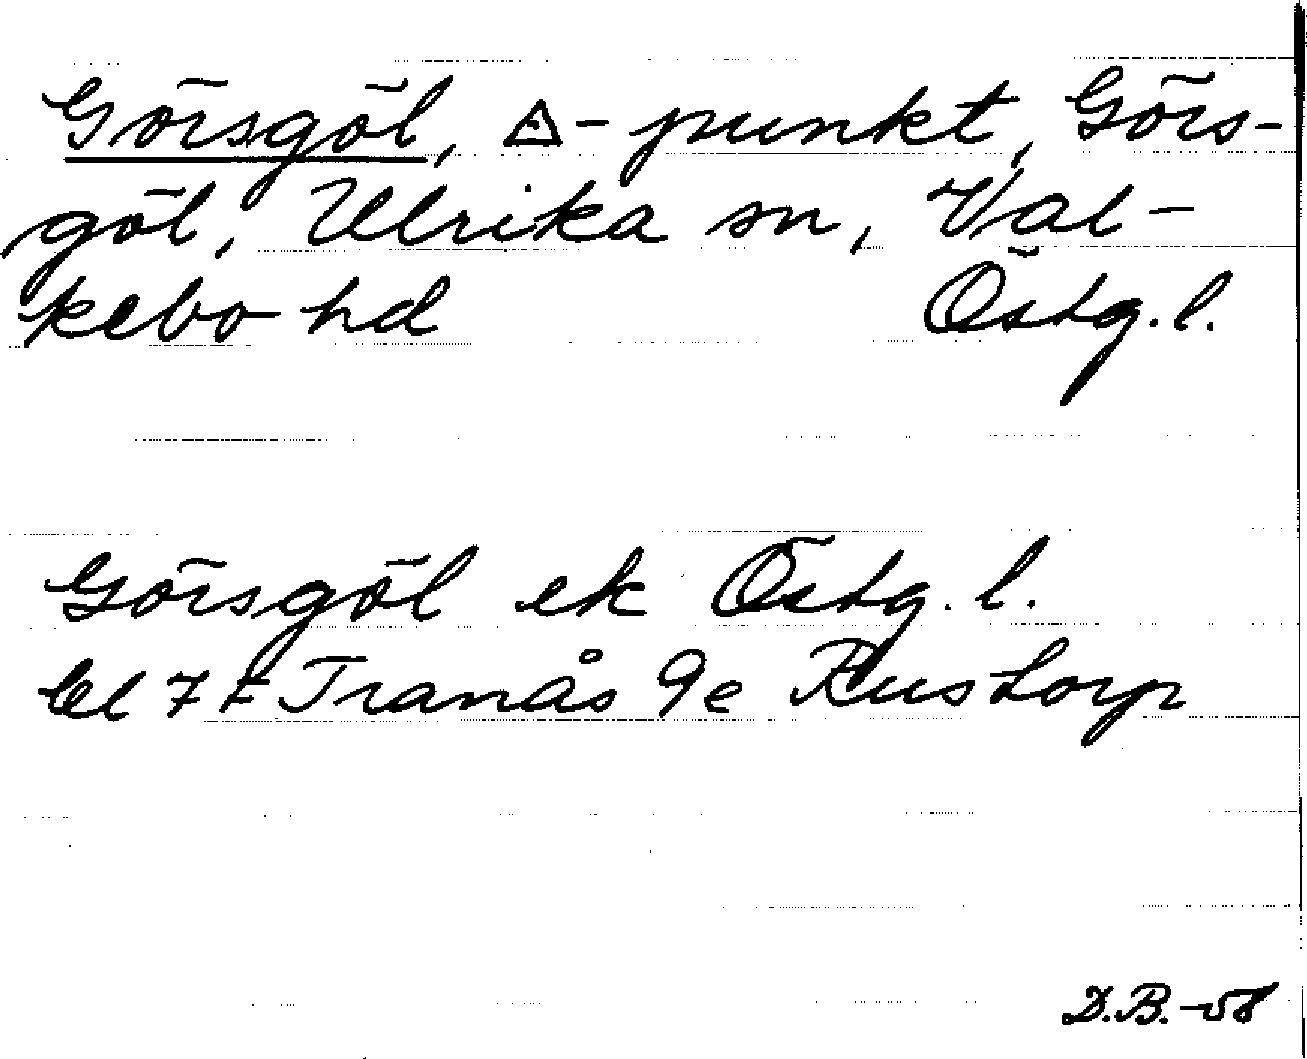 Görsgöl, △-punkt, Görs-
göl, Ulrika sn, Val-
kebo hd Östg. l.
Görsgöl ek Östg. l.
bl 7 F Tranås 9e Rustorp
D.B.-58